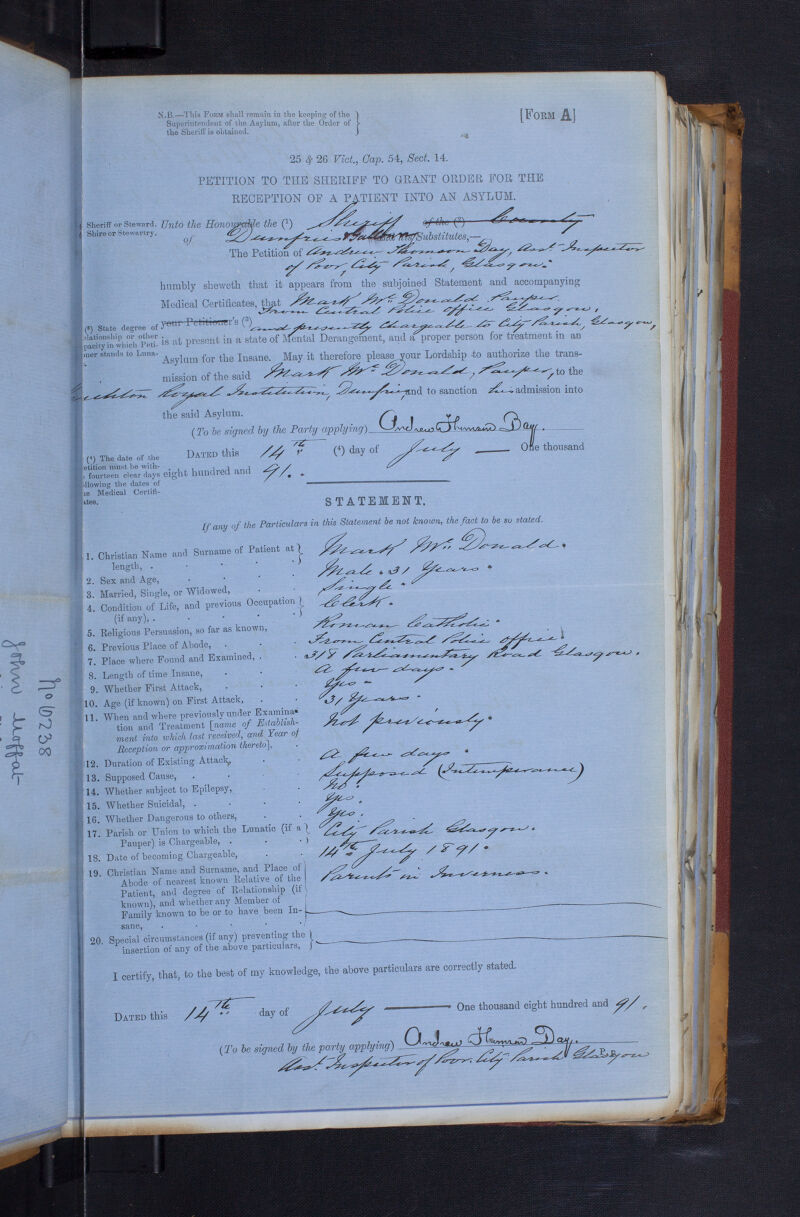 N.B.—This Form shall remain in the keeping of the
Superintendent of the Asylum, after the Order of
the Sheriff is obtained.
[Form A]
25 & 26 Vict., Cap. 54, Sect. 14.
PETITION TO THE SHERIFF TO GRANT ORDER FOR THE
RECEPTION OF A PATIENT INTO AN ASYLUM.
Sheriff or Steward.
Shire or Stewartry.
Unto the Honourable the (1) Sheriff of the (2) County
of Dumfries & Galloway his Substitutes,—
The Petition of Andrew Thomson Day, Asst. Inspector
of Poor, City Parish, Glasgow.
humbly sheweth that it appears from the subjoined Statement and accompanying
Medical Certificates, that Mark McDonald Pauper
From Central Police Office Glasgow,
your Petitioner's (3) and presently Chargeable to City Parish, Glasgow,
(3) State degree of
lationship or other
pacity in which Peti-
oner stands to Luna-
is at present in a state of Mental Derangement, and a proper person for treatment in an
Asylum for the Insane. May it therefore please your Lordship to authorize the trans-
mission of the said Mark McDonald, Pauper, to the
Crichton Royal Institution, Dumfries and to sanction his admission into
the said Asylum.
(To be signed by the Party applying) Andrew Thomson Day.
Dated this 14th (4) day of July — One thousand
eight hundred and 91.
(4) The date of the
etition must be with-
fourteen clear days
llowing the dates of
e Medical Certifi-
ates.
STATEMENT.
If any of the Particulars in this Statement be not known, the fact to be so stated.
1. Christian Name and Surname of Patient at length, . . . . Mark McDonald.
2. Sex and Age, . . . . Male. 31 Years.
3. Married, Single, or Widowed, . . Single.
4. Condition of Life, and previous Occupation (if any), . . . . Clerk.
5. Religious Persuasion, so far as known, Roman Catholic.
6. Previous Place of Abode, . . . From Central Police Office
7. Place where Found and Examined, . . 318 Parliamentary Road Glasgow.
8. Length of time Insane, . . . A few days.
9. Whether First Attack, . . . Yes.
10. Age (if known) on First Attack, . . 31 Years.
11. When and where previously under Examina-
tion and Treatment [name of Establish-
ment into which last received, and Year of
Reception or approximation thereto], . Not previously.
12. Duration of Existing Attack, . . A few days.
13. Supposed Cause, . . . Supposed (Intemperance)
14. Whether subject to Epilepsy, . . No.
15. Whether Suicidal, . . . . Yes.
16. Whether Dangerous to others, . . Yes.
17. Parish or Union to which the Lunatic (if a
Pauper) is Chargeable, . . . City Parish Glasgow.
18. Date of becoming Chargeable, . . 14th July 1891.
19. Christian Name and Surname, and Place of
Abode of nearest known Relative of the
Patient, and degree of Relationship (if
known), and whether any Member of
Family known to be or to have been In-
sane, . . . . Parents in Inverness.
20. Special circumstances (if any) preventing the
insertion of any of the above particulars,
I certify, that, to the best of my knowledge, the above particulars are correctly stated.
Dated this 14th day of July — One thousand eight hundred and 91.
(To be signed by the party applying) Andrew Thomson Day.
Asst. Inspector of Poor. City Parish Glasgow
No 10238
John Moffat